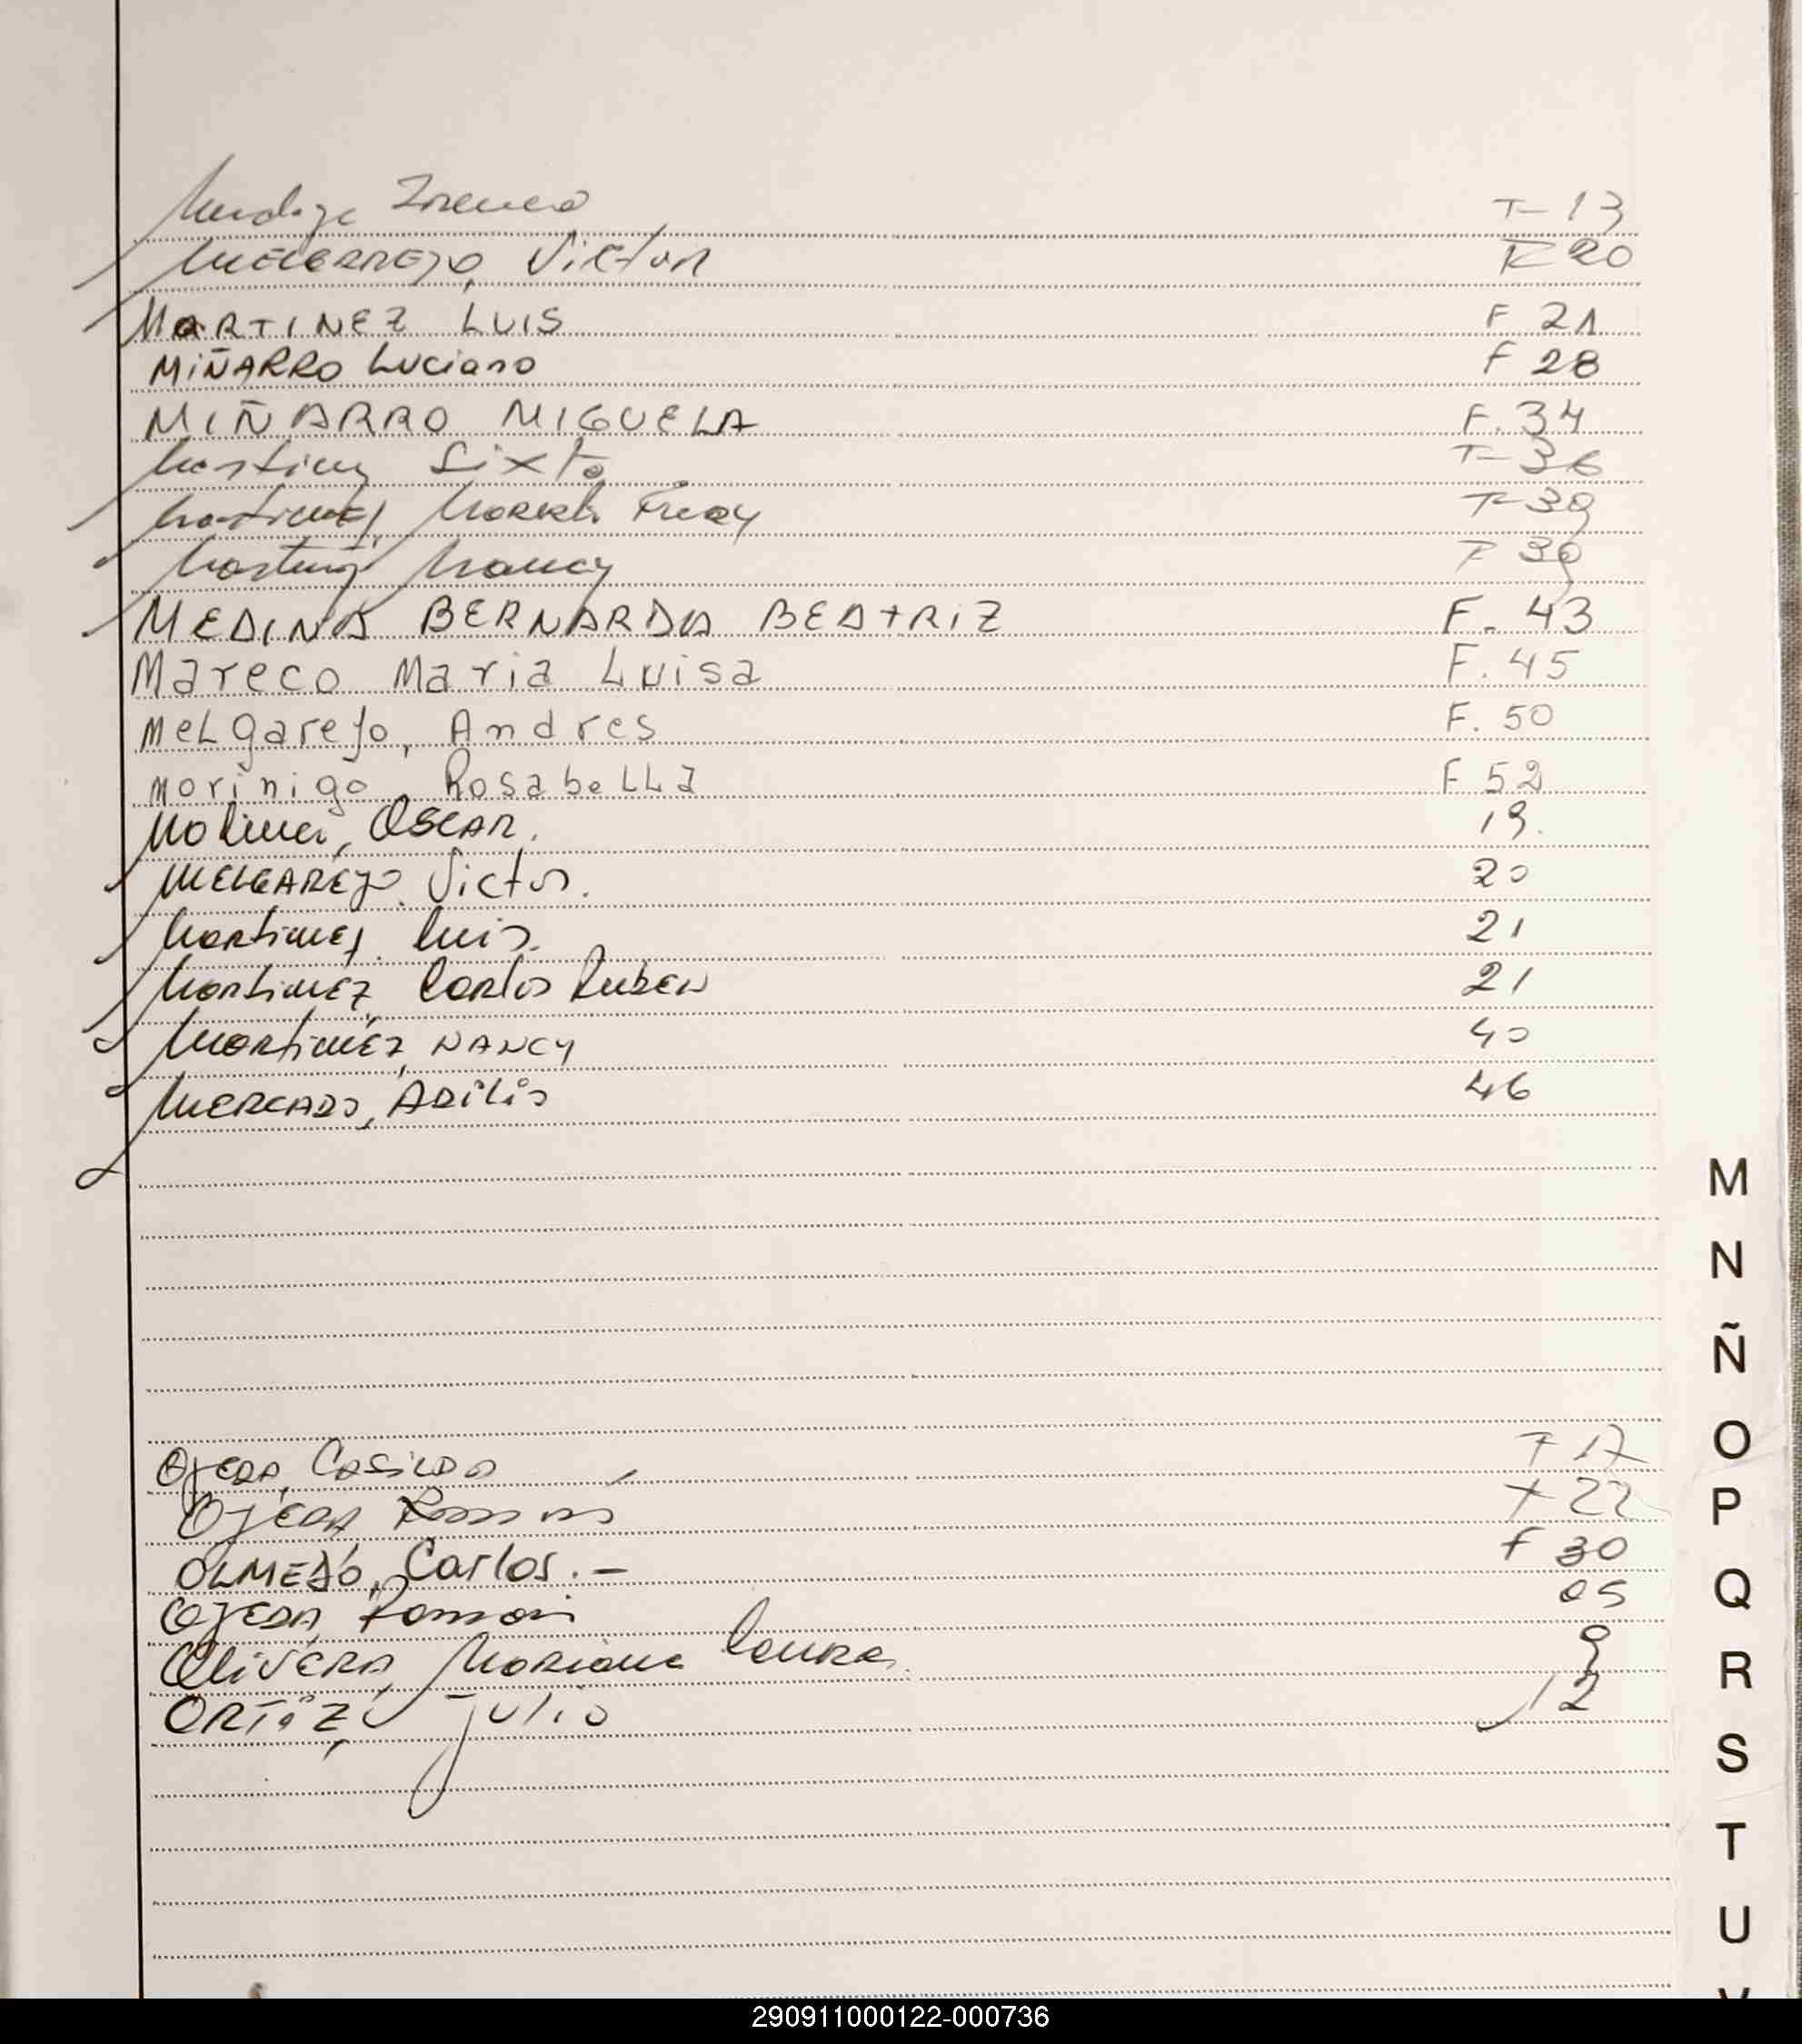 Irenea F 13
MELGAREJO, Victor F 20
MARTINEZ LUIS F 21
MiÑARRO Luciano F 28
MIÑARRO MIGUELA F. 34
Martinez Sixto F 36
Martinez, Fredy F 39
Martinez Nancy F 39
MEDINA BERNARDA BEATRIZ F. 43
Mareco Maria Luisa F. 45
MeLgarejo, Andres F. 50
morinigo Rosabella F 52
Molina, OSCAR. 19.
MELGAREJO. Victor. 20
Martinez. Luis. 21
Martinez, Carlos Ruben 21
Martinez, NANCY 40
MERCADO, ADiLio 46
M
N
Ñ
OJEDA, CASILDA F 17
O
OJEDA Ramon F 22
P
OLMEDO, Carlos. – F 30
OJEDA, Ramon 05
Q
OliVERA, Mariana Laura. 9
R
ORTiZ, Julio 12
S
T
U
V
290911000122-000736